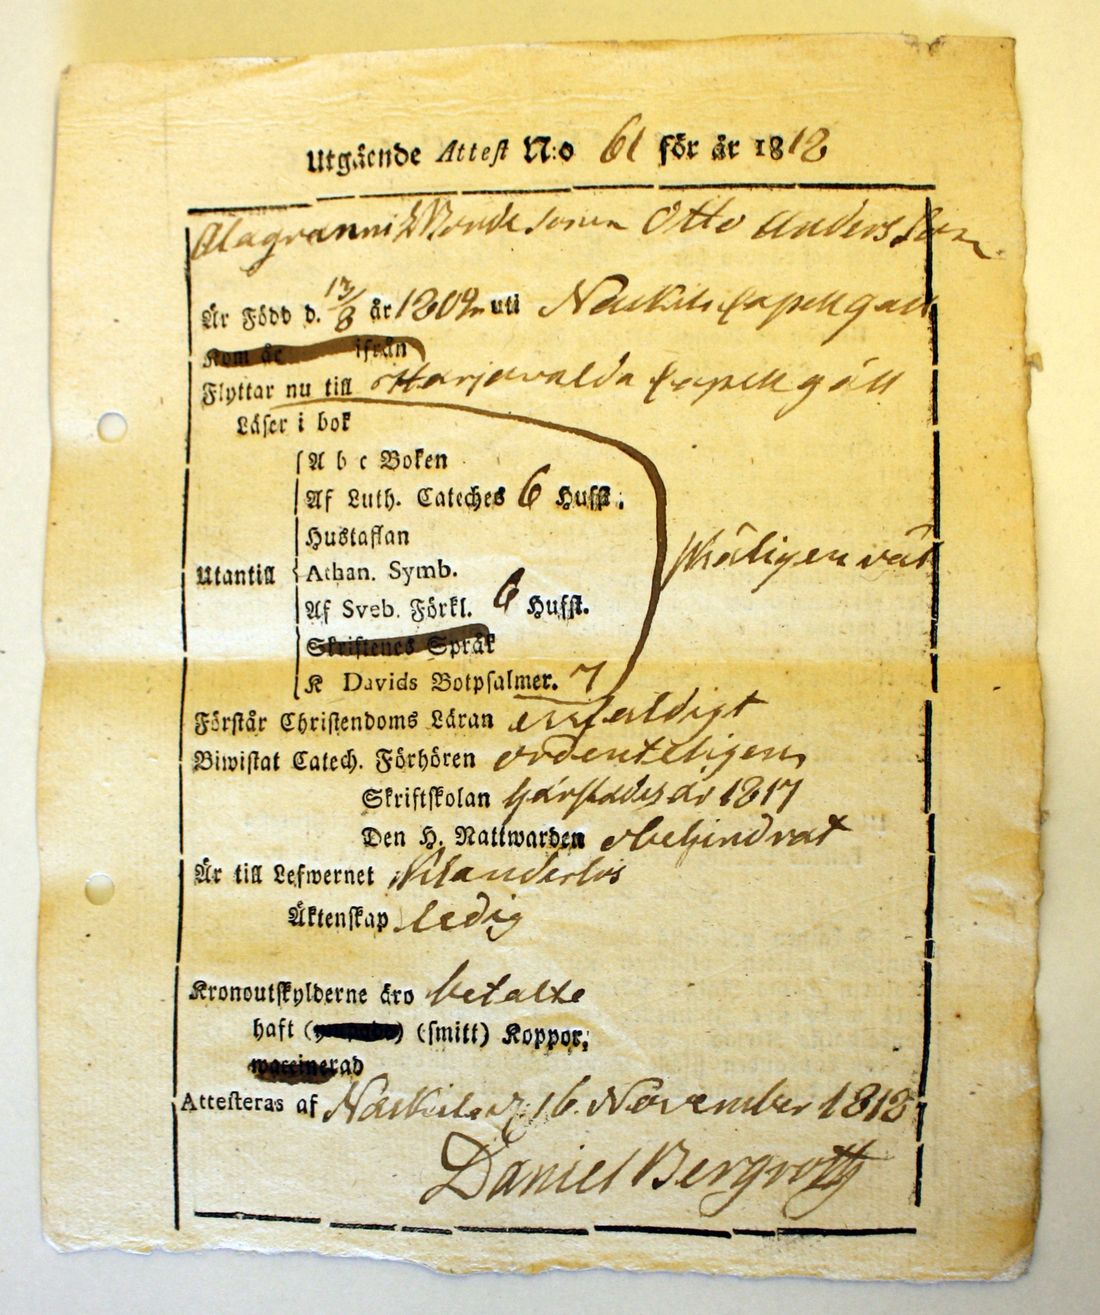 Utgäende Attest N:o 61 för är 1818
Bonde sonen Otto Anders Son
Är Född d. 13/8 är 1802 uti Nackila Capell gäll
Kom är ifrån
Flyttar nu till Harjavalda Capell gäll
Läser i bok
A b c Boken
Af Luth. Cateches 6 Hufst.
Hustaflan
Utantill Athan. Symb. skäligen väl
Af Sveb. Förkl. 6 Hufst.
Skriftenes Språk
K Davids Botpsalmer. 7
Förstår Christendoms Läran enfaldigt
Biwistat Catech. Förhören ordenteligen
Skriftskolan härstädes år 1817
Den H. Nattwarden obehindrat
Är till Lefwernet Klanderlös
Äktenskap ledig
Kronoutskylderne äro betalte
haft (smitt) Koppor,
waccinerad
Attesteras af Nackila d. 16. November 1818
Daniel Bergroth